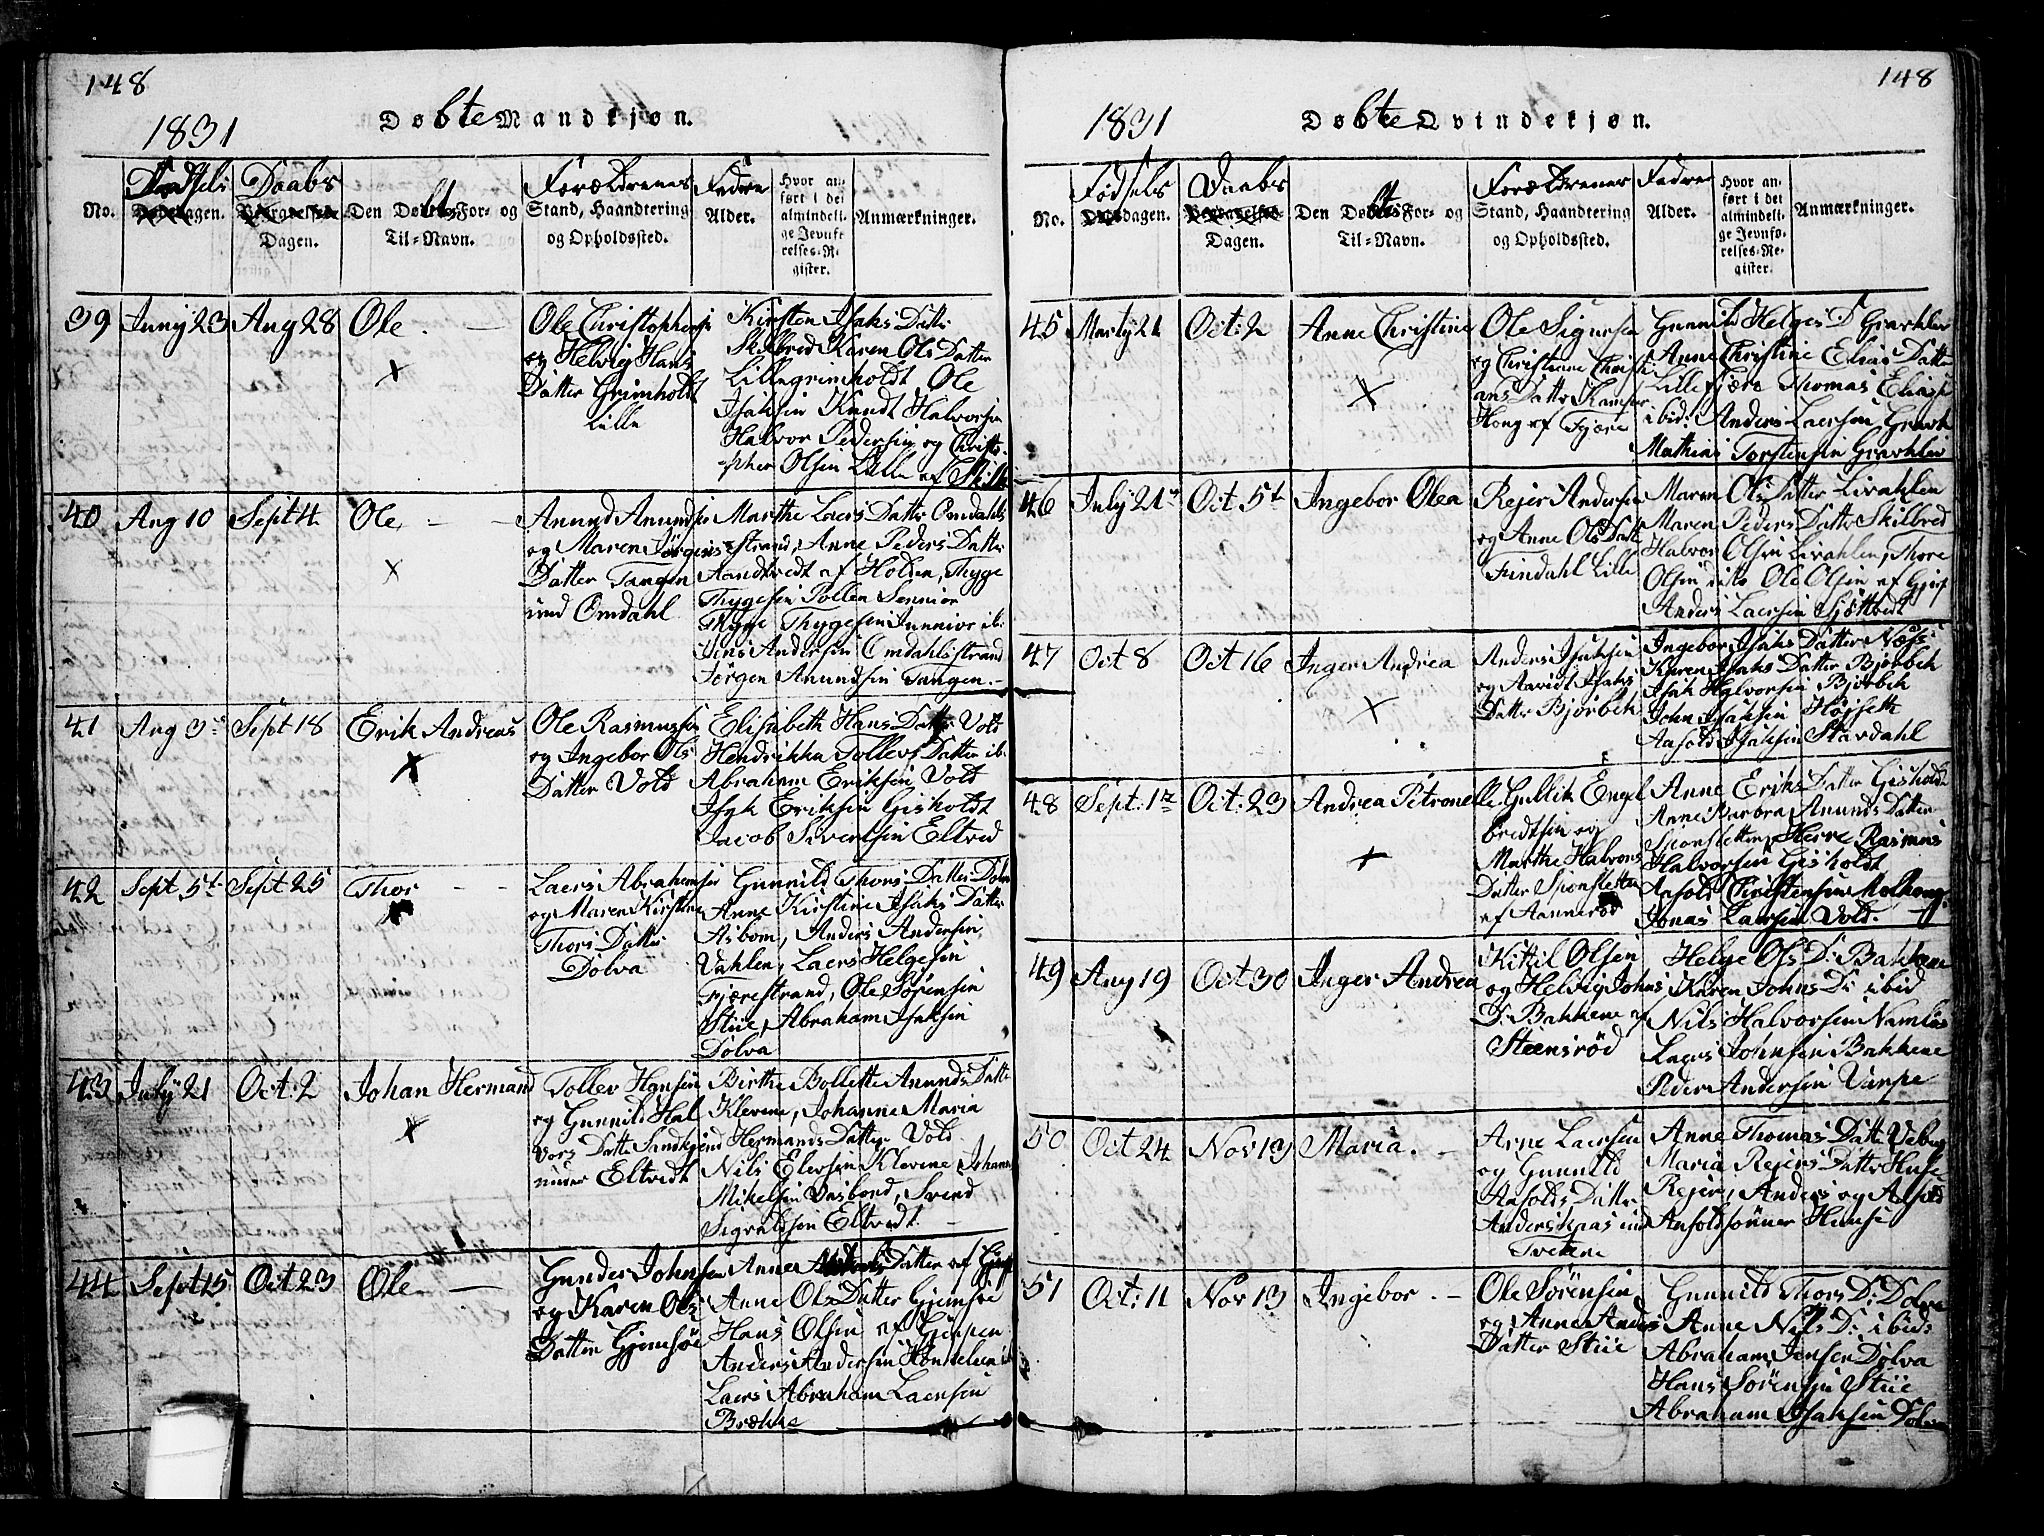 148
1831
Døbte Mandkjøn.
No.
Fødsels
dagen.
Daabs
Dagen.
Den Døbtes For- og
Til-Navn.
Forældrenes
Stand, Haandtering
og Opholdssted.
Fadre
Alder.
Hvor an-
ført i det
almindeli-
ge Jevnfø-
relses-Re-
gister.
Anmærkninger.
39
Juny 23
Aug 28
Ole. —
Ole Christophersen
og Helvig Hans
Datter Grimholt
Lille
Kirsten Isaks Datter
Skilbred Karen Ols Datter
Lillegrimholdt, Ole
Isaksen Knudt Halvorsen
Halvor Pedersen og Christo-
pher Olsen Lille af
40
Aug 10
Sept 4
Ole — —
Anund Anundsen
og Maren Jørgens
Datter Tangen
und Omdahl
Marthe Laers Datter Omdahls
strand, Anne Peders Datter
Aandtvedt af Holden, Thyge
Thygesen Pollen Sennior
Thyge Thygesen Junnior ib:
Jens Andersen Omdahlsstrand
Jørgen Anundsen Tangen. —
41
Aug 3
Sept 18
Erik Andreas
Ole Rasmussen
og Ingebor Ols
Datter Vold
Elisebeth Hans Datter Vold
Hendrikka Tollevs Datter ib:
Abraham Eriksen Vold
Isak Eriksen Gisholdt
Jacob Sivertsen Eltved
42
Sept 5t
Sept 25
Thor — —
Laers Abrahamsen
og Maren Kirstine
Thors Datter
Dolva
Gunnild Thors Datter Dolva
Anne Kirstine Isaks Datter
Asbom, Anders Andersen
Vahlen, Laers Helgesen
Fjærestrand, Ole Sørensen
Stiie, Abraham Isaksen
Dolva
43
July 21
Oct: 2
Johan Hermand
Tollev Hansen
og Gunnild Hal
vors Datter Sandkjend
under Eltvedt
Birthe Bollette Anunds Datter
Klevene, Johanne Maria
Hermands Datter Vold
Nils Elevsen Klevene Johan
Mikelsen Vasbond, Svend
Sigvaldsen Eltvedt. —
44
Sept 15
Oct 23
Ole —
Gunder Johnsen
og Karen Ols
Datter Gjemsøe
Anne Datter af
Anne Ols Datter Gjemsøe
Hans Olsen af Gjerpen
Anders Andersen
Laers Abraham Laersen
Brække
148
1831
Døbte Qvindekjøn.
No.
Fødsels
dagen.
Daabs
Dagen.
Den Døbtes For- og
Til-Navn.
Forældrenes
Stand, Haandtering
og Opholdssted.
Fadres
Alder.
Hvor an-
ført i det
almindeli-
ge Jevnfø-
relses-Re-
gister.
Anmærkninger.
45
Marty 21
Oct: 2
Anne Christine
Ole Sigursen
og Christiane Christi
ans Datter
Houg af Fjære
Gunnild Helges D Gravhlev
Anne Christine Elias Datter
Lille Fjære Thomas Eliase
ibid: Anders Laersen
Mathias Torstensen Gravhlev
46
July 21
Oct 5t
Ingebor Olea
Rejer Andersen
og Anne Ols Datt
Findahl Lille
Maren Ols Datter Livahlen
Maren Peders Datter Skilbred
Halvor Olsen Livahlen, Thore
Olsen dito Ole Olsen af Gjerp
Anders Laersen Sjøttvedt
47
Oct 8
Oct 16
Inger Andrea
Anders Isaksen
og Aavidt Isaks
Datter Bjørbek
Ingebor Isaks Datter Næss
Karen Isaks Datter Bjørbek
Isak Halvorsen Bjørbek
John Isaksen Højsette
Aasold Isaksen Stavdahl
48
Sept: 12
Oct: 23
Andrea Petronelle
Gullik Engel
bredtsen og
Marthe Halvors
Datter Sponsletten
af Aannerød
Anne Eriks Datter Gisholdt
Anne Barbra Anunds Datter
Sponsletten, Herre Rasmus
Halvorsen Gisholdt
Aasold Christensen
Jonas Laersen Vold. —
49
Aug 19
Oct: 30
Inger Andrea
Kittil Olsen
og Helvig Johns
D: Bakkene af
Steensrød
Helge Ols D: Bakkene
Karen Johns D: ibid
Nils Halvorsen Namløs
Laers Johnsen Bakkene
Peder Andersen Vanpe
50
Oct 24
Nov 13
Maria. —
Arne Laersen
og Gunnild
Aasolds Datter
Anders Kaas und
Tvetene
Anne Thomas Datter
Maria Rejers Datter Huse
Rejer, Anders og Aasold
Aasoldsønner Huuse
51
Oct: 11
Nov 13
Ingebor. —
Ole Sørensen
og Anne Anders
Datter Stiie
Gunnild Thors D: Dolva
Anne Nils D: ibid:
Abraham Jensen Dolva
Hans Sørensen Stiie
Abraham Isaksen Dolva